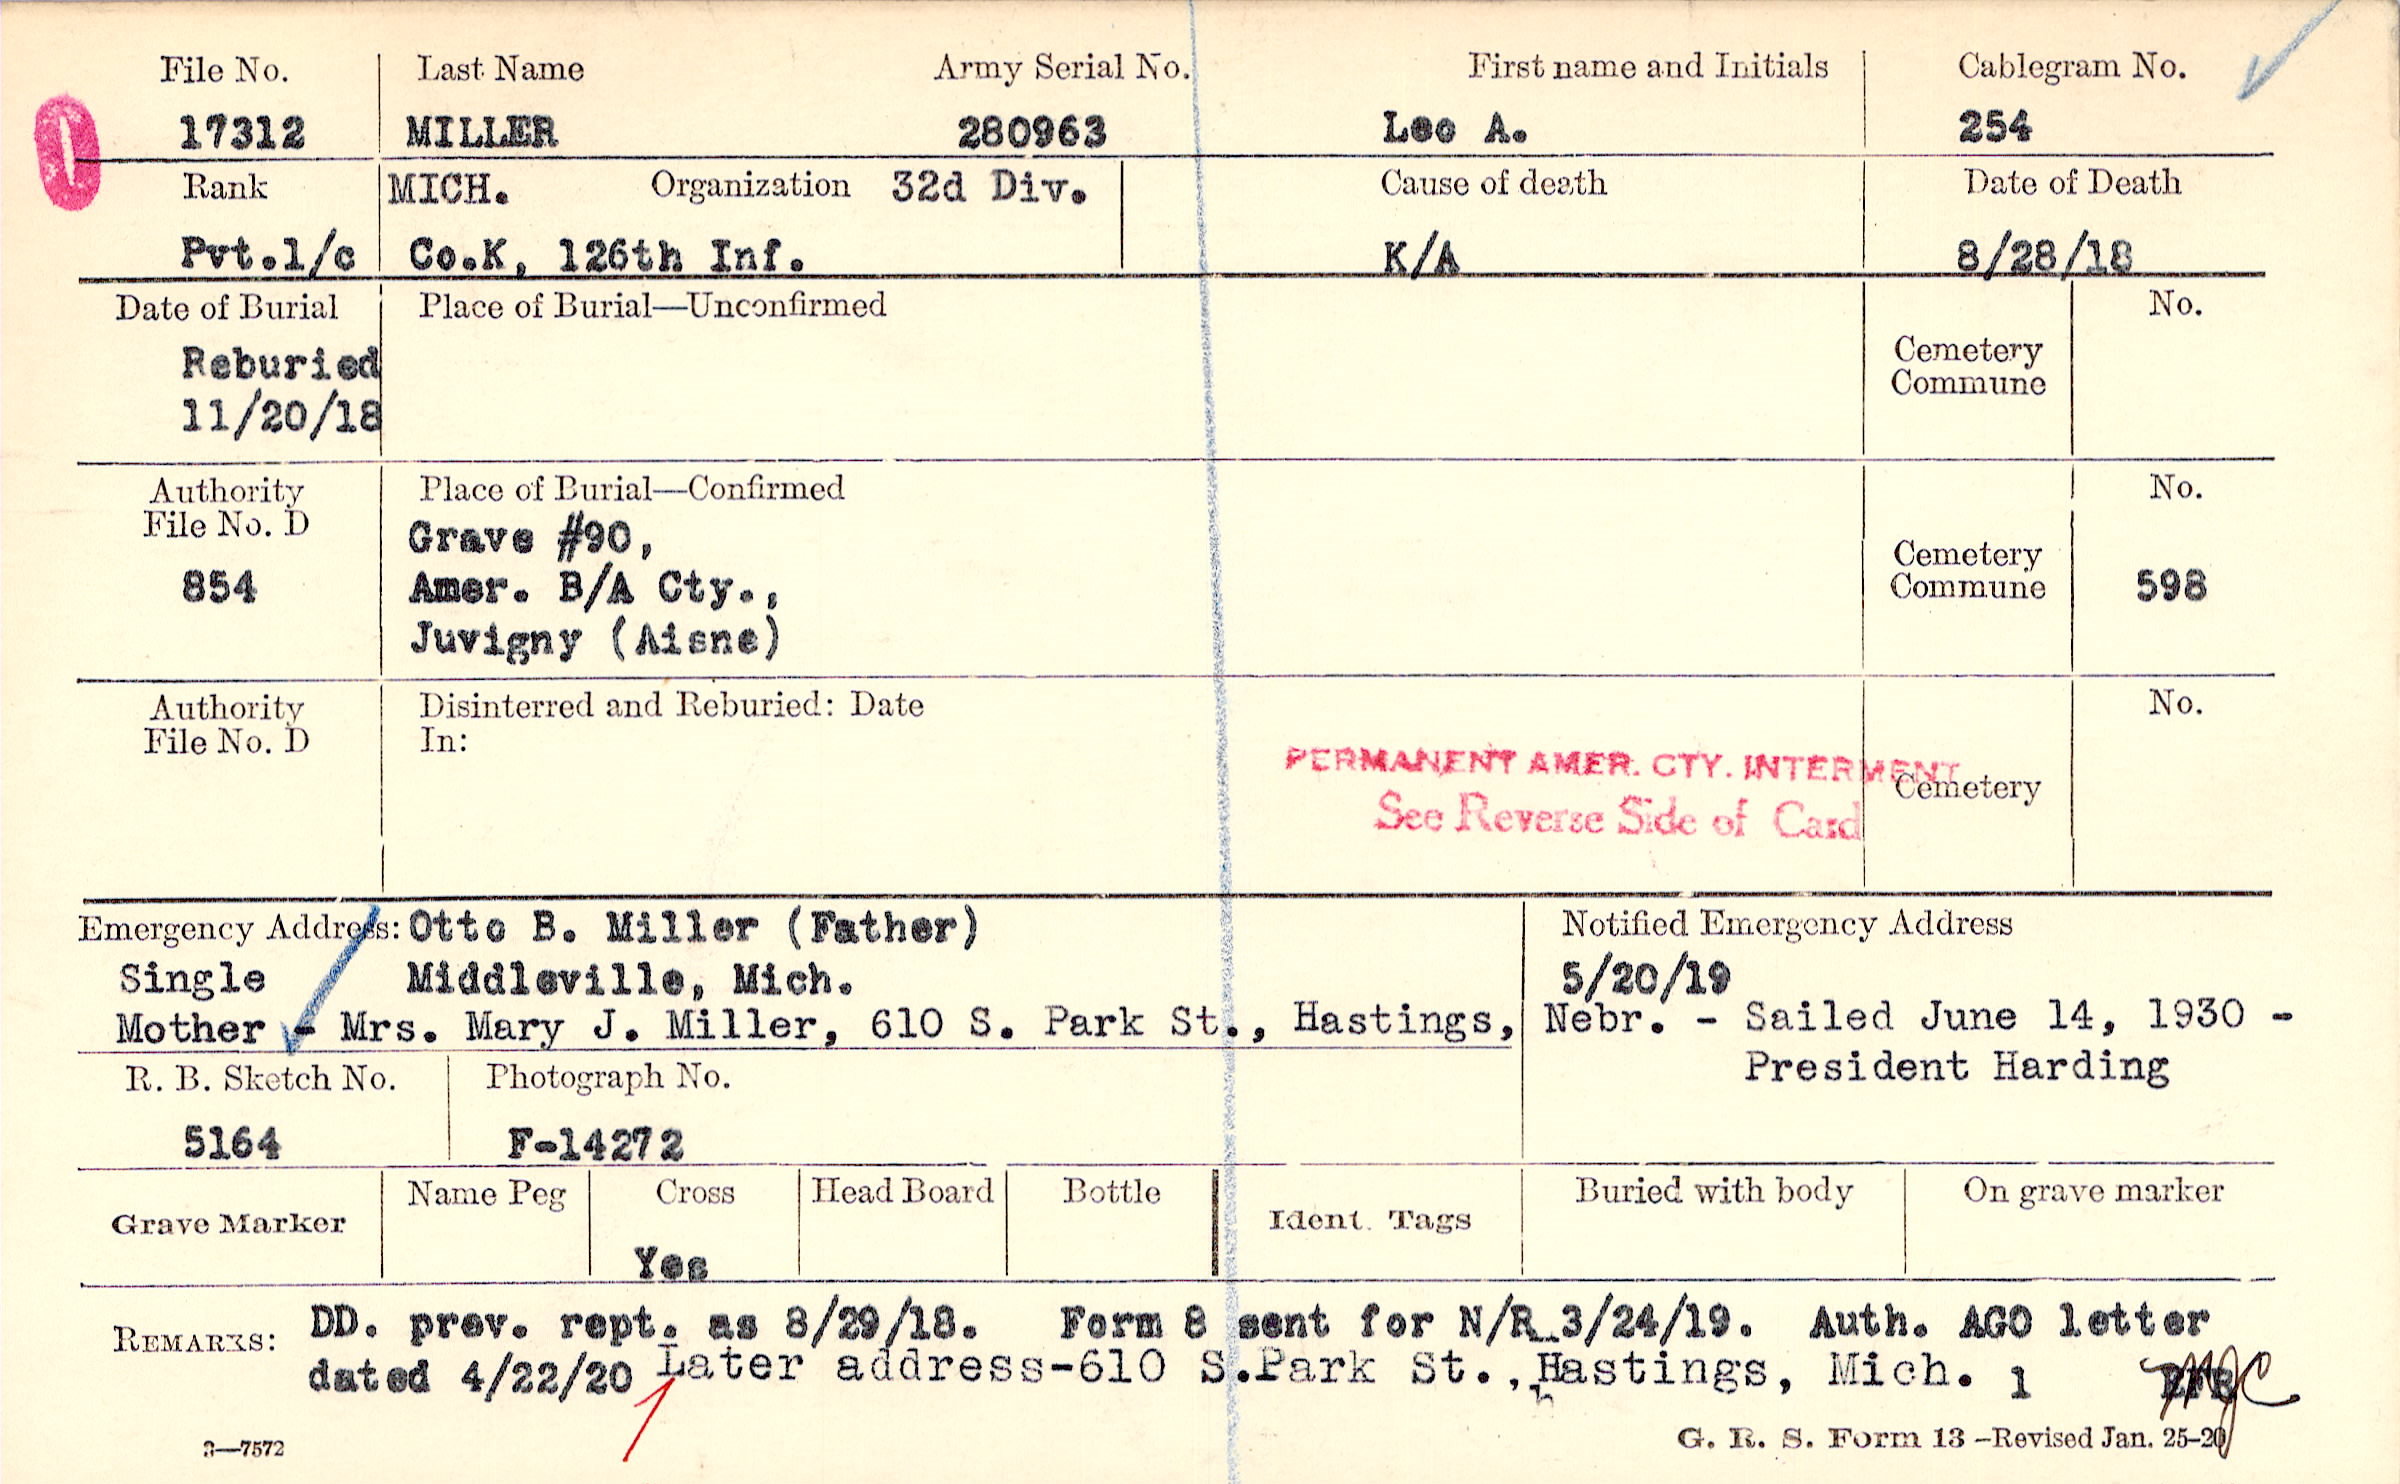 File No. Last Name Army Serial No. First name and Initials Cablegram No.
17312 MILLER 280963 Leo A. 254
Rank MICH. Organization 32d Div. Cause of death Date of Death
Pvt.1/c Co.K, 126th Inf. K/A 8/28/18
Date of Burial Place of Burial—Unconfirmed No.
Reburied Cemetery
11/20/18 Commune
Authority Place of Burial—Confirmed No.
File No. D Grave #90,
Cemetery
854 Amer. B/A Cty., Commune 598
Juvigny (Aisne)
Authority Disinterred and Reburied: Date No.
File No. D In:
PERMANENT AMER. CTY. INTERMENT
Cemetery
See Reverse Side of Card
Emergency Address: Otto B. Miller (Father) Notified Emergency Address
Single Middleville, Mich. 5/20/19
Mother - Mrs. Mary J. Miller, 610 S. Park St., Hastings, Nebr. - Sailed June 14, 1930 -
President Harding
R. B. Sketch No. Photograph No.
5164 F-14272
Name Peg Cross Head Board Bottle Buried with body On grave marker
Grave Marker Ident. Tags
Yes
REMARKS: DD. prev. rept. as 8/29/18. Form 8 sent for N/R 3/24/19. Auth. AGO letter
dated 4/22/20 Later address-610 S.Park St., Hastings, Mich. 1
3—7572 G. R. S. Form 13 -Revised Jan. 25-20